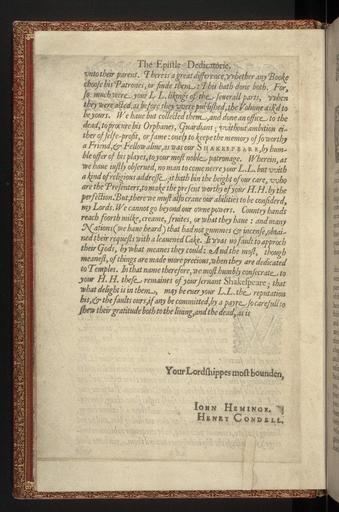 The Epistle Dedicatorie.
vnto their parent. There is a great difference, vvhether any Booke
choose his Patrones, or finde them: This hath done both. For,
so much were your L L. likings of the seuerall parts, vvhen
they were acted, as before they vvere published, the Volume ask'd to
be yours. We haue but collected them, and done an office to the
dead, to procure his Orphanes, Guardians; vvithout ambition ei-
ther of selfe-profit, or fame: onely to keepe the memory of so worthy
a Friend, & Fellow aliue, as was our SHAKESPEARE, by hum-
ble offer of his playes, to your most noble patronage. Wherein, as
we haue iustly obserued, no man to come neere your L.L. but vvith
a kind of religious addresse; it hath bin the height of our care, vvho
are the Presenters, to make the present worthy of your H.H. by the
perfection. But, there we must also craue our abilities to be considerd,
my Lords. We cannot go beyond our owne powers. Country hands
reach foorth milke, creame, fruites, or what they haue : and many
Nations (we haue heard) that had not gummes & incense, obtai-
ned their requests with a leauened Cake. It vvas no fault to approch
their Gods, by what meanes they could: And the most, though
meanest, of things are made more precious, when they are dedicated
to Temples. In that name therefore, we most humbly consecrate to
your H. H. these remaines of your seruant Shakespeare; that
what delight is in them, may be euer your L.L. the reputation
his, & the faults ours, if any be committed, by a payre so carefull to
shew their gratitude both to the liuing, and the dead, as is
Your Lordshippes most bounden,
IOHN HEMINGE.
HENRY CONDELL.